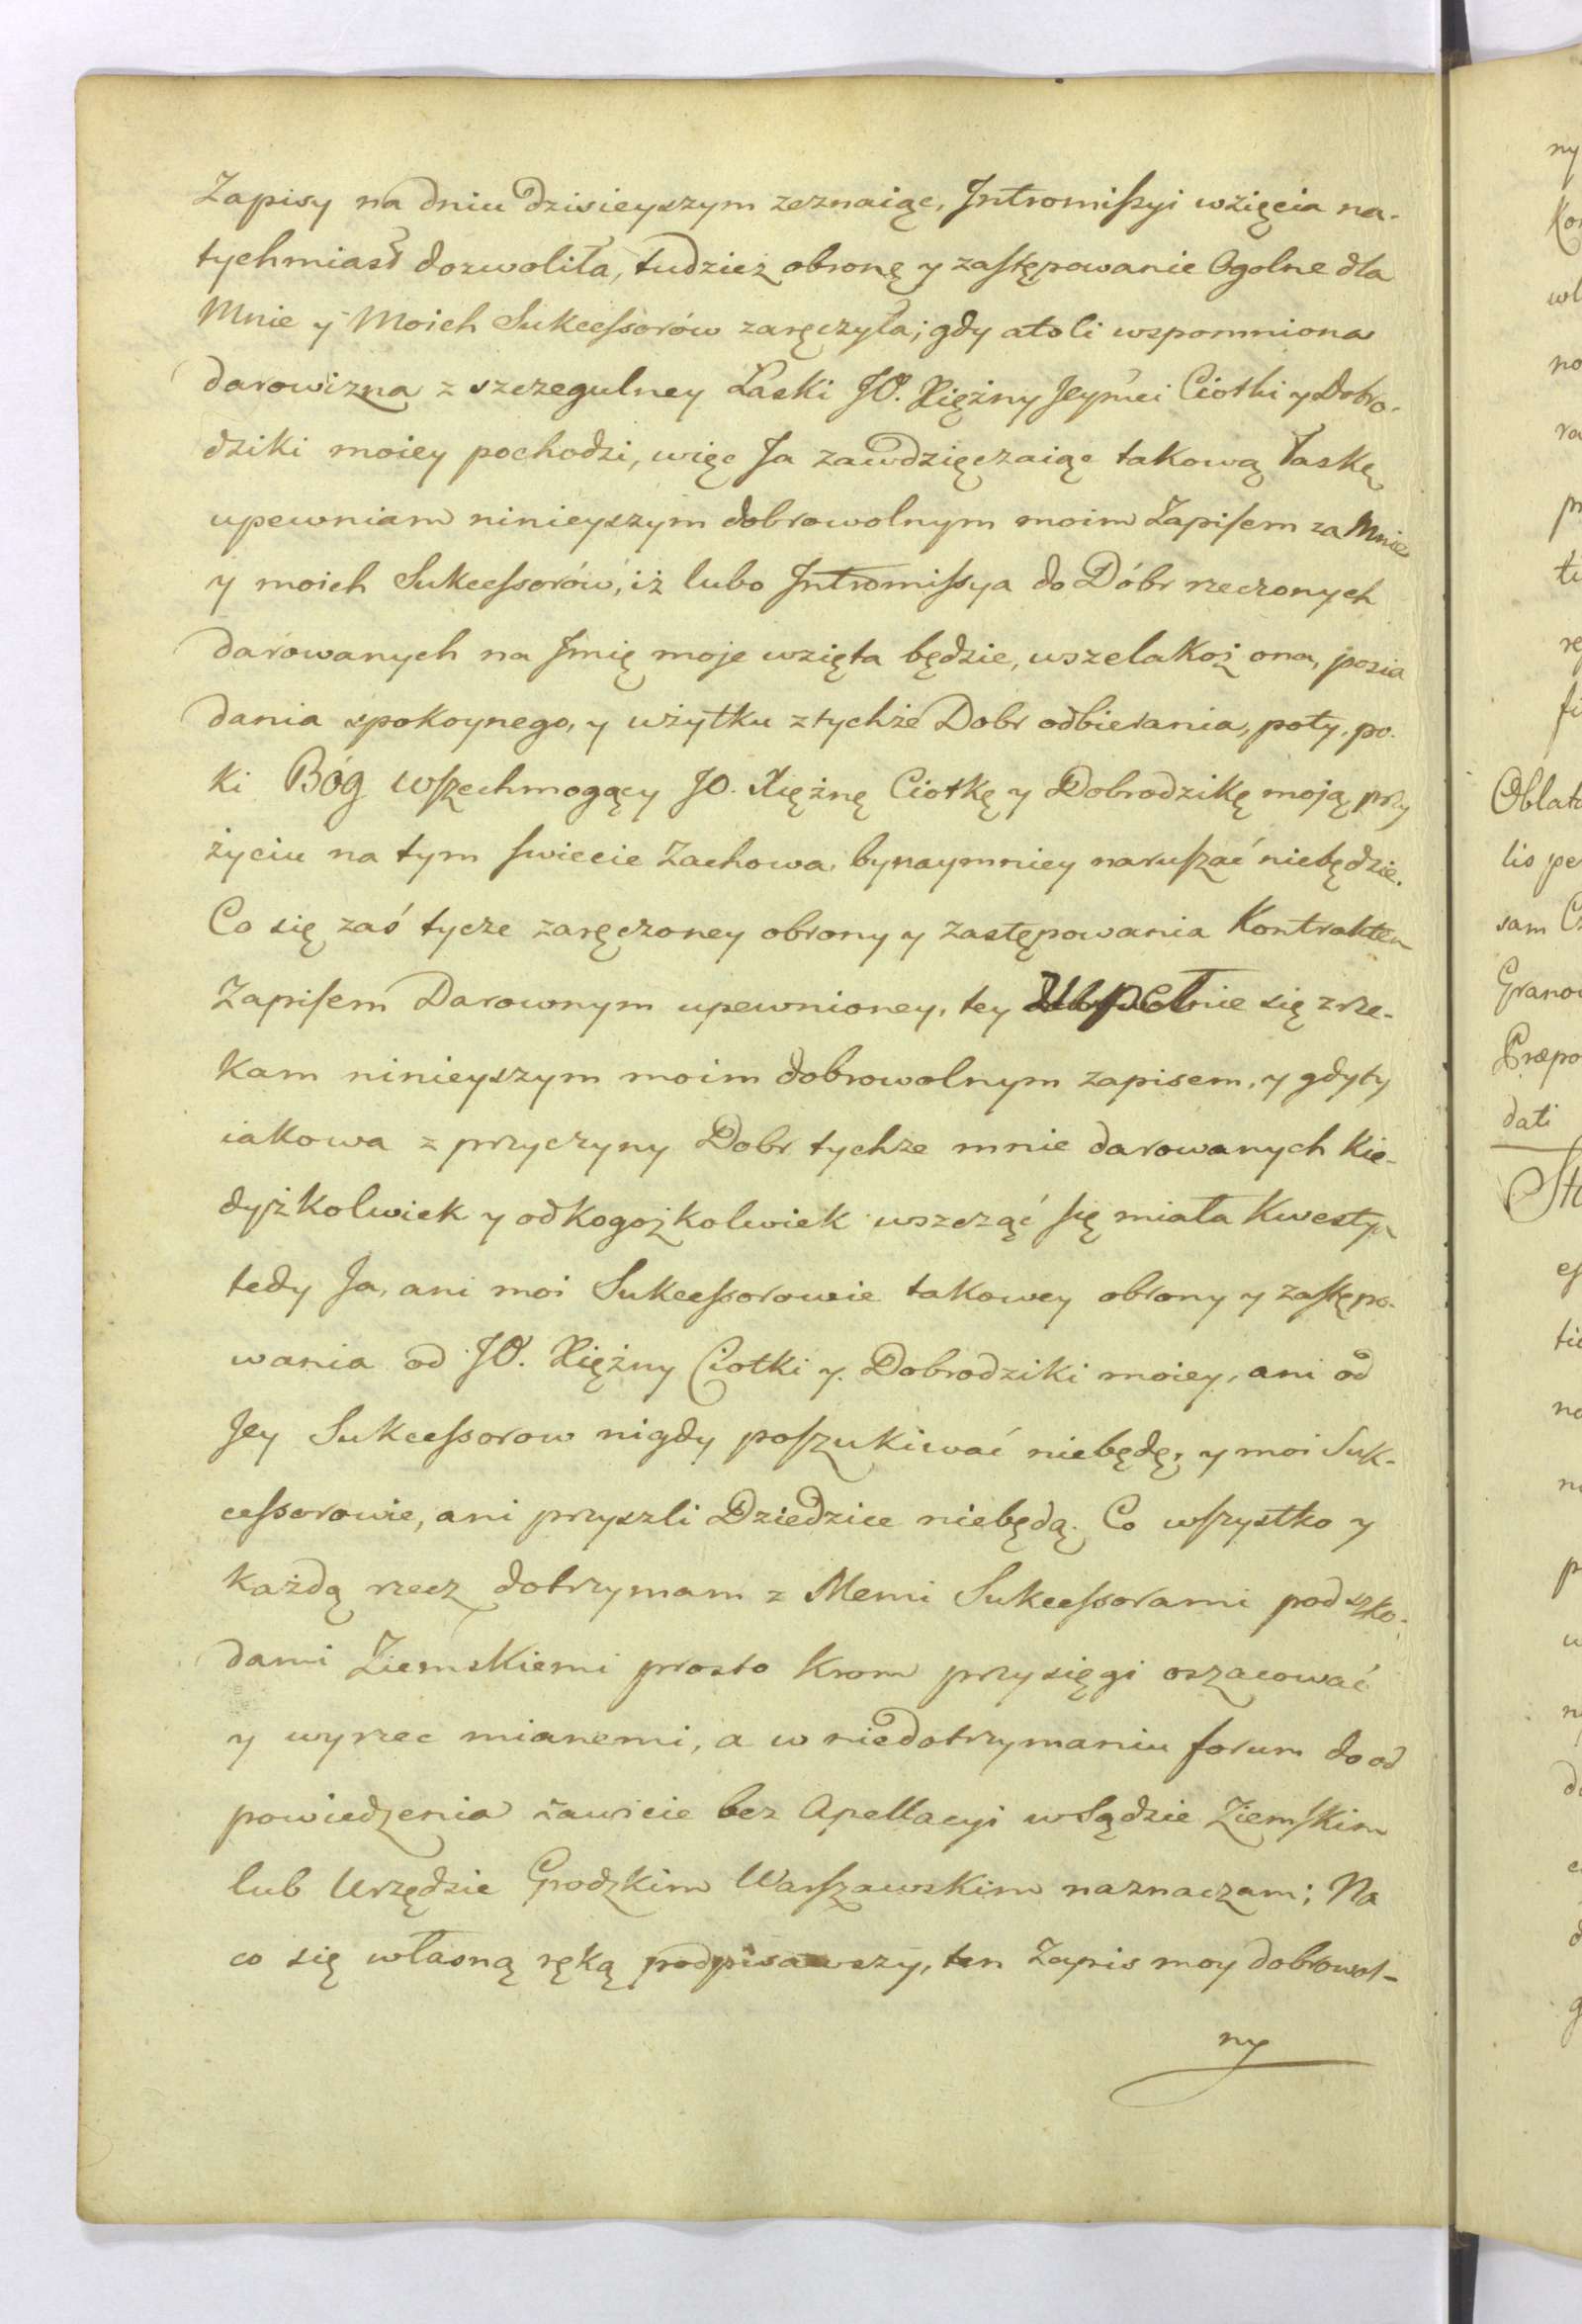 Zapisy na dniu dzisieyszym zeznaiąc, Jntromißyi wzięcia na-
tychmiast dozwoliła, tudzież obronę y zastępowanie Ogolne dla
Mnie y Moich Sukceßorów zaręczyła; gdy atoli wspomniona
darowizna z szczegulney Łaski JO. Xiężny Jeymci Ciotki y Dobro-
dziki moiey pochodzi, więc Ja zawdzięczaiąc takową łaskę
upewniam ninieyszym dobrowolnym moim Zapisem za Mnie
y moich Sukceßorów, iż lubo Jntromißya do Dóbr rzeczonych
darowanych na Jmię moje wzięta będzie, wszelakoż ona, posia
dania spokoynego, y użytku z tychże Dobr odbierania, poty, po-
ki Bóg Wszechmogący JO. Xiężnę Ciotkę y Dobrodzikę moją przy
życiu na tym swiecie Zachowa, bynaymniey naruszać niebędzie.
Co się zaś tycze zaręczoney obrony y zastępowania Kontraktem
Zapisem Darownym upewnioney, tey zupełnie się zrze-
kam ninieyszym moim dobrowolnym zapisem, y gdyty
iakowa z przyczyny Dobr tychże mnie darowanych kie-
dyżkolwiek y odkogożkolwiek wszcząć się miała Kwestya
tedy Ja, ani moi Sukceßorowie takowey obrony y zastępo-
wania od JO. Xiężny Ciotki y Dobrodziki moiey, ani od
Jey Sukceßorow nigdy poszukiwać niebędę, y moi Suk-
ceßorowie, ani przyszli Dziedzice niebędą. Co wszystko y
każdą rzecz dotrzymam z Memi Sukceßorami pod szko-
dami Ziemskiemi prosto krom przysięgi oszacować
y wyrzec mianemi, a w niedotrzymaniu forum do od
powiedzenia zawicie bez Apellacyi w Sądzie Ziemskim
lub Urzędzie Grodzkim Warszawskim naznaczam; Na
co się własną ręką podpisawszy, ten Zapis moy dobrowol-
ny
ny
wl
no
Oblat
lis pe
sam
Granov
Præpo
dati